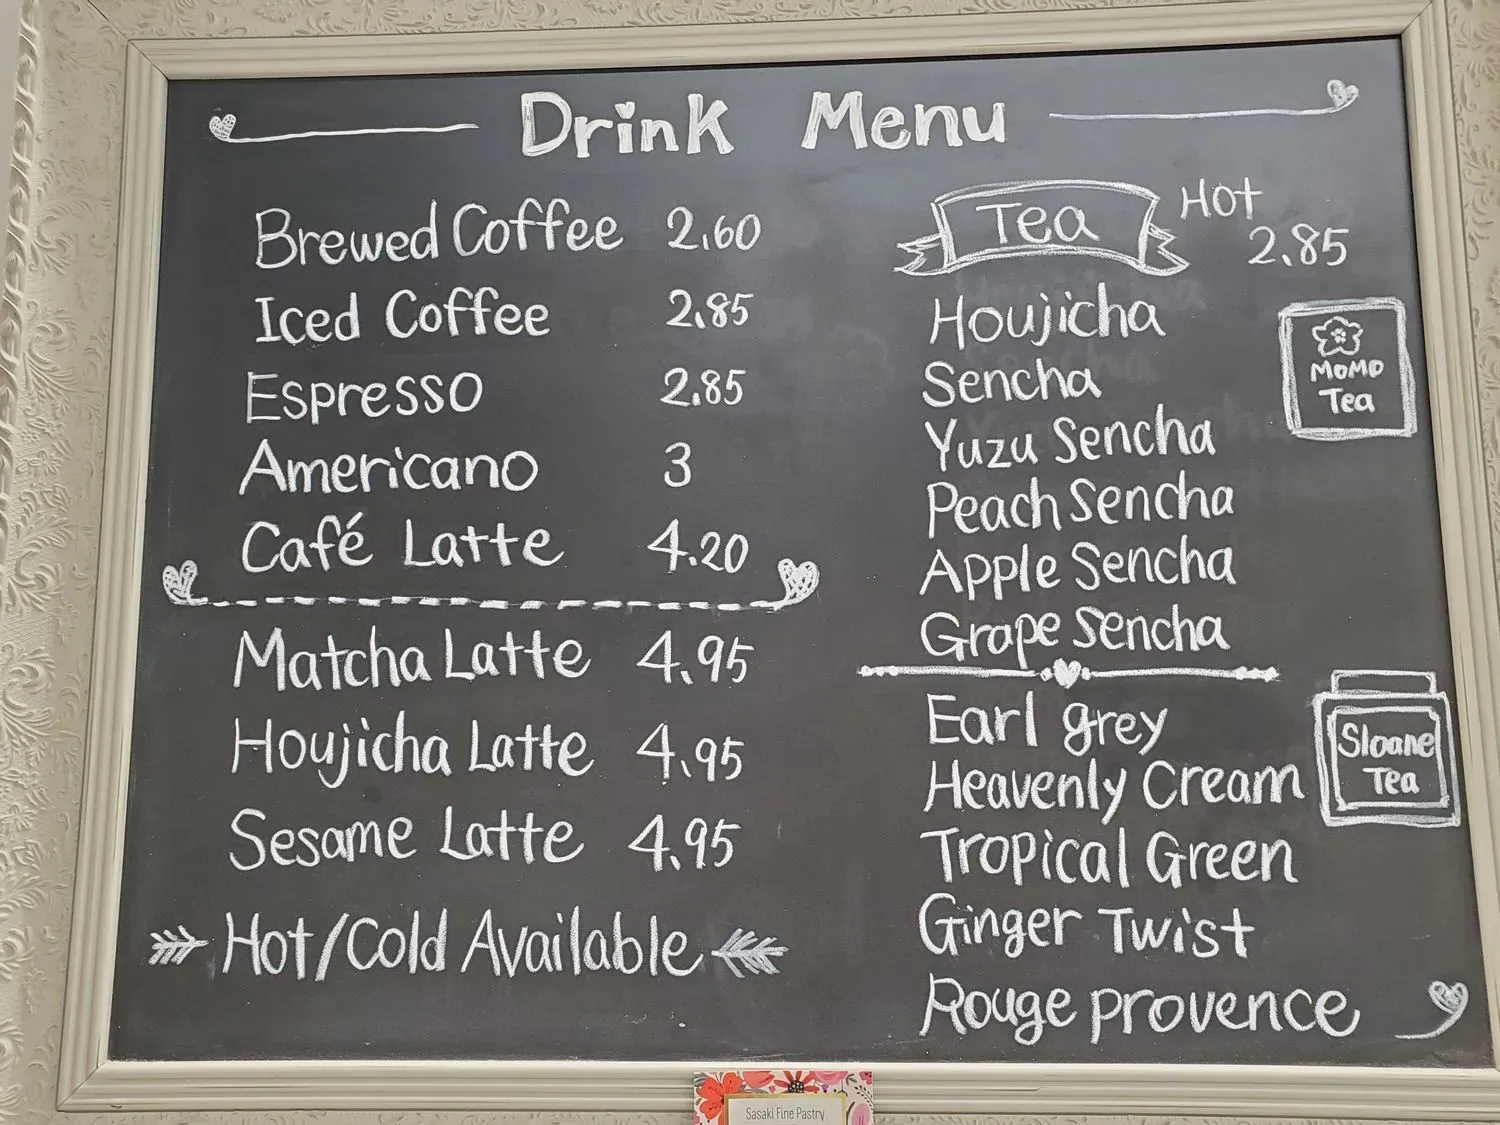 Drink Menu
Brewed Coffee 2.60
Iced Coffee 2.85
Espresso 2.85
Americano 3
Café Latte 4.20
Matcha Latte 4.95
Houjicha Latte 4.95
Sesame Latte 4.95
Hot/Cold Available
Tea Hot
2.85
Houjicha
Sencha
Yuzu Sencha
Peach Sencha
Apple Sencha
Grape Sencha
MoMo
Tea
Earl grey
Heavenly Cream
Tropical Green
Ginger Twist
Rouge provence
Sloane
Tea
Sasaki Fine Pastry